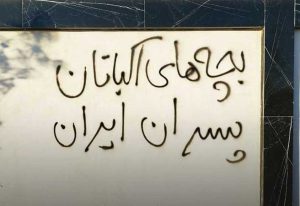 بچه‌های اکباتان
پسران ایران